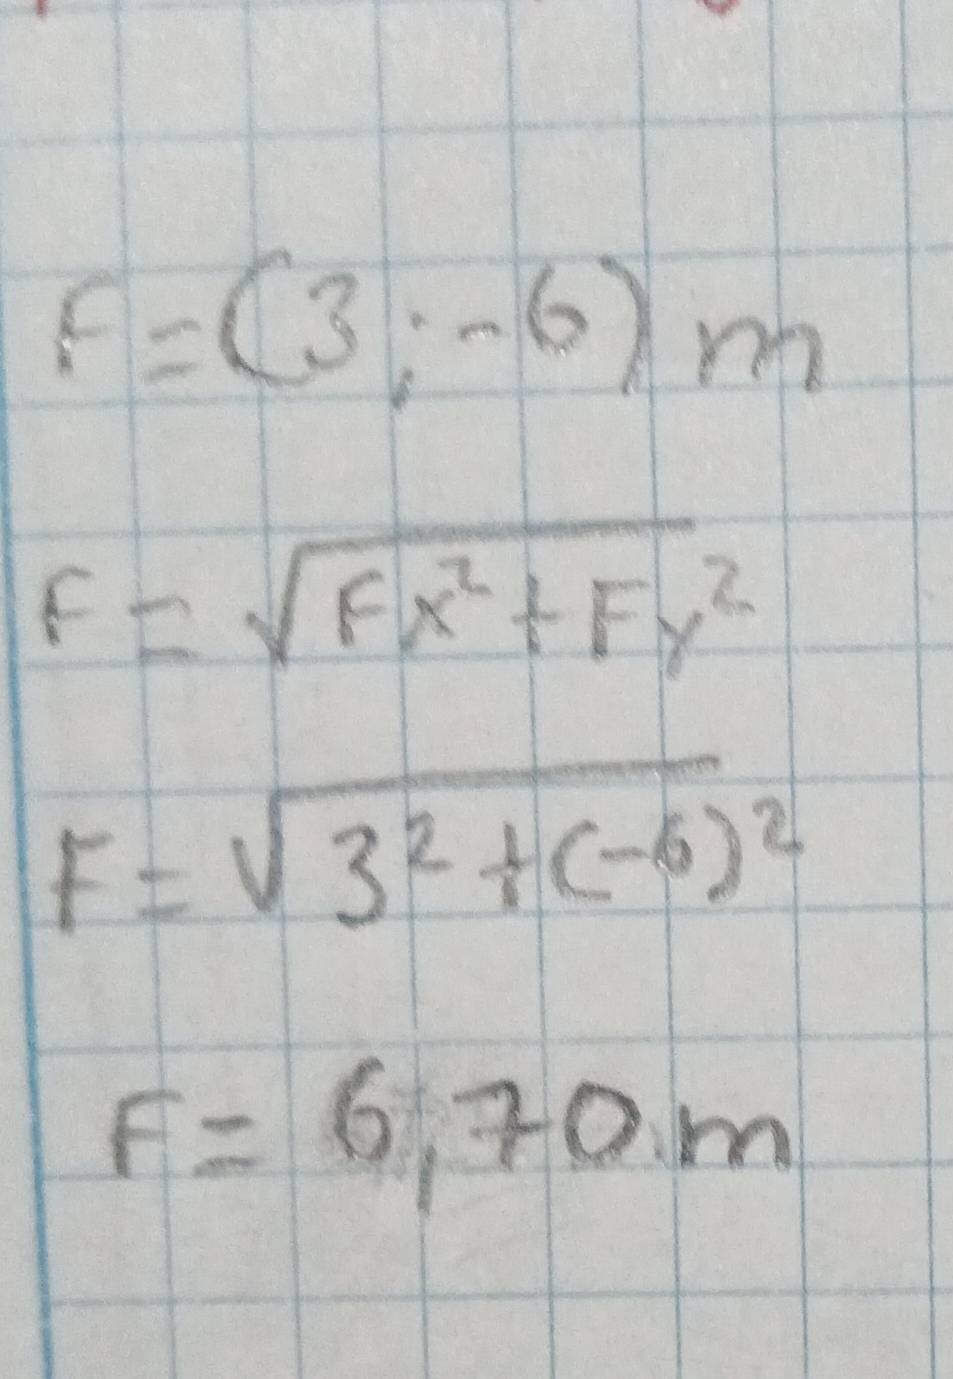 F = (3 ; -6) m
F = √Fx² + Fy²
F = √3² + (-6)²
F = 6,70 m